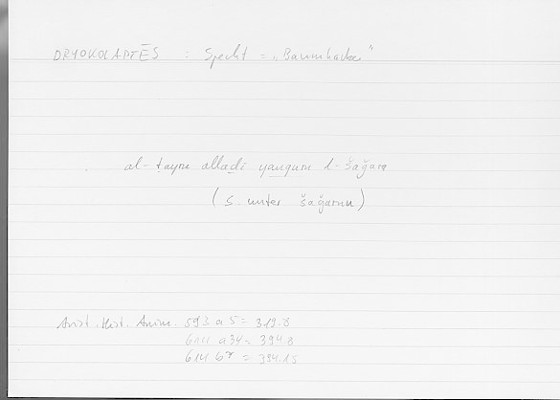 DRYOKOLAPTĒS : Specht = „Baumhacker“
al-ṭayru allaḏī yanquru l-šaǧara
(s. unter šaǧarun)
Arist. Hist. Anim. 593 a 5 = 319.8
614 a 34 = 394.8
614 b 7 = 394.15